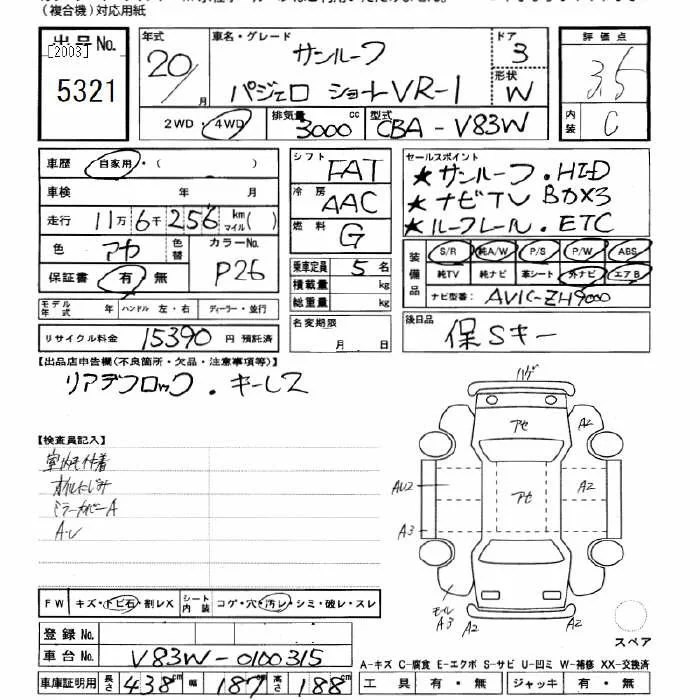 (複合機)対応用紙
出品No.
[2003]
5321
年式
20/
月
車名・グレード
サンルーフ
パジェロ ショートVR-I
ドア
3
形状
W
評価点
3.5
内装
C
2WD・4WD
排気量
3000
cc
型式
CBA - V83W
車歴
自家用・( )
車検 年 月
走行 11万 6千 256 km マイル( )
色 アカ
色替
カラーNo.
P26
保証書 有・無
モデル年式 年 ハンドル 左・右 ディーラー・並行
リサイクル料金 15390 円 預託済
シフト FAT
冷房 AAC
燃料 G
乗車定員 5 名
積載量 kg
総重量 kg
名変期限
月 日
セールスポイント
★サンルーフ.HID
★ナビTV BOX3
★ルーフレール.ETC
装備品
S/R 純A/W P/S P/W ABS
純TV 純ナビ 革シート 外ナビ エアB
ナビ型番: AVIC-ZH9000
後日品
保Sキー
【出品店申告欄(不良箇所・欠品・注意事項等)】
リアデフロック.キーレス
【検査員記入】
ミラーカバーA
ハゲ
アセ
A2
AU2
アセ
A2
A3
A2
モール
A3
A2
A2
スペア
FW キズ・トビ石・割レX
シート内装 コゲ・穴・汚レ・シミ・破レ・スレ
登録No.
車台No. V83W-0100315
車庫証明用 長さ 438 cm 幅 187 cm 高さ 188 cm
A-キズ C-腐食 E-エクボ S-サビ U-凹ミ W-補修 XX-交換済
工具 有・無 ジャッキ 有・無